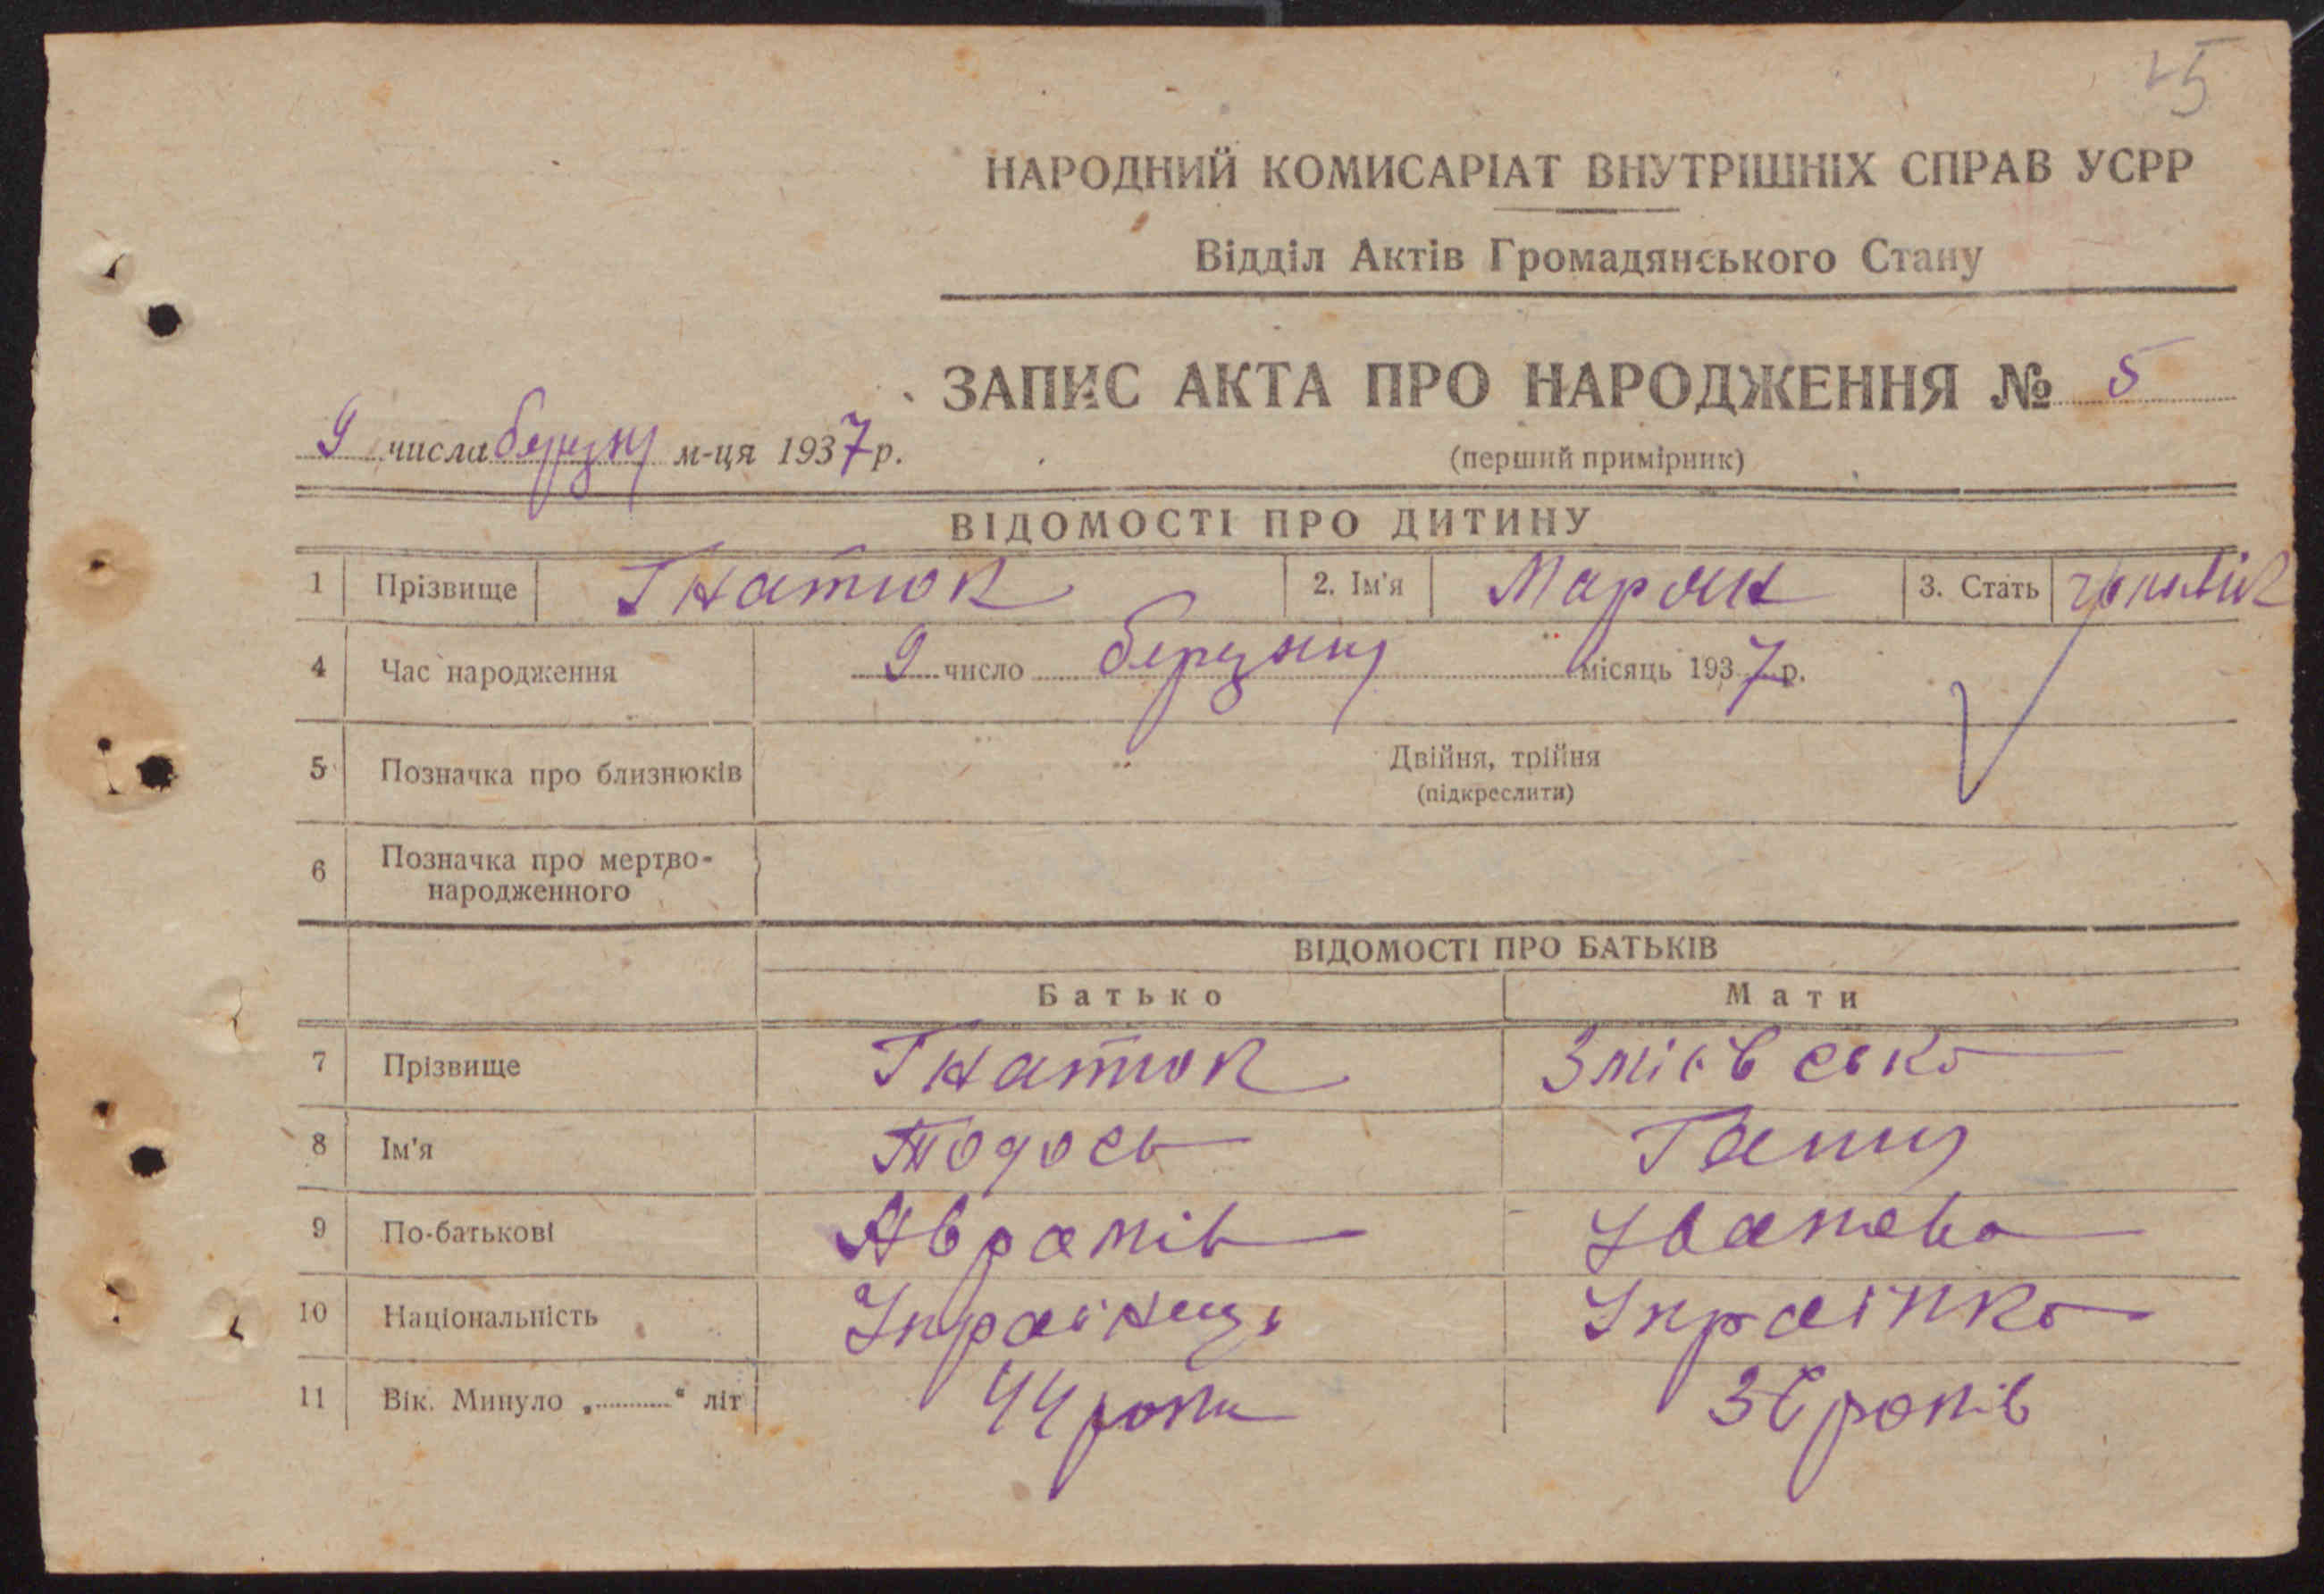 45
НАРОДНИЙ КОМИСАРІАТ ВНУТРІШНІХ СПРАВ УСРР
Відділ Актів Громадянського Стану
ЗАПИС АКТА ПРО НАРОДЖЕННЯ № 5
9 числа березня м-ця 1937 р.
(перший примірник)
ВІДОМОСТІ ПРО ДИТИНУ
1 Прізвище Гнатюк 2. Ім'я Марян 3. Стать
4 Час народження 9 число березня місяць 1937 р.
5 Позначка про близнюків Двійня, трійня
(підкреслити)
6 Позначка про мертво-
народженного
ВІДОМОСТІ ПРО БАТЬКІВ
Батько Мати
7 Прізвище Гнатюк Змієвсько
8 Ім'я Тодось
9 По-батькові Аврамів Іванова
10 Національність Українець Українка
11 Вік. Минуло „..........“ літ 44 роки 36 років